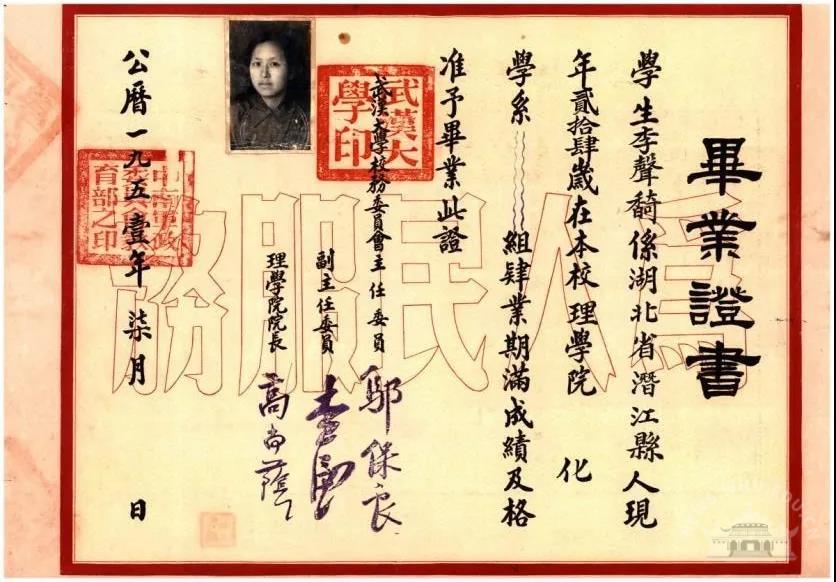 畢業證書
學生李聲係湖北省潛江縣人現
年貳拾肆歲在本校理學院 化
學系 組肄業期滿成績及格
准予畢業此證
武漢大學印
武漢大學校務委員會主任委員 鄔保良
副主任委員
理學院院長 高尚蔭
公曆一九五壹年柒月 日
育部之印
為人民服務